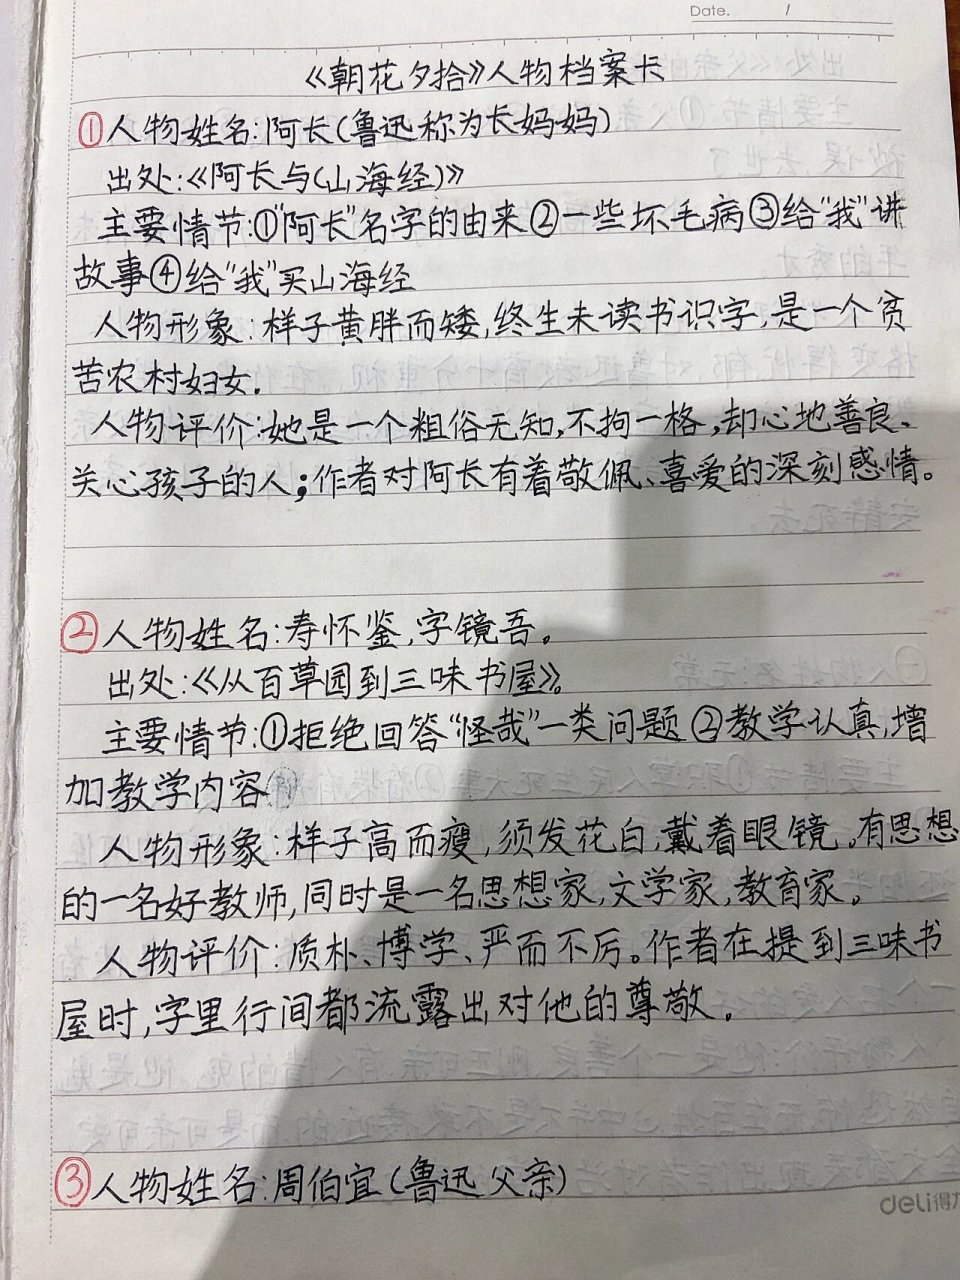 Date. /
《朝花夕拾》人物档案卡
①人物姓名:阿长(鲁迅称为长妈妈)
出处:《阿长与(山海经)》
主要情节:①"阿长"名字的由来②一些坏毛病③给"我"讲
故事④给"我"买山海经
人物形象:样子黄胖而矮,终生未读书识字,是一个贫
苦农村妇女.
人物评价:她是一个粗俗无知,不拘一格,却心地善良、
关心孩子的人;作者对阿长有着敬佩、喜爱的深刻感情。
②人物姓名:寿怀鉴,字镜吾。
出处:《从百草园到三味书屋》。
主要情节:①拒绝回答"怪哉"一类问题②教学认真,增
加教学内容
人物形象:样子高而瘦,须发花白,戴着眼镜。有思想
的一名好教师,同时是一名思想家,文学家,教育家。
人物评价:质朴、博学、严而不厉。作者在提到三味书
屋时,字里行间都流露出对他的尊敬.
③人物姓名:周伯宜(鲁迅父亲)
deli得力